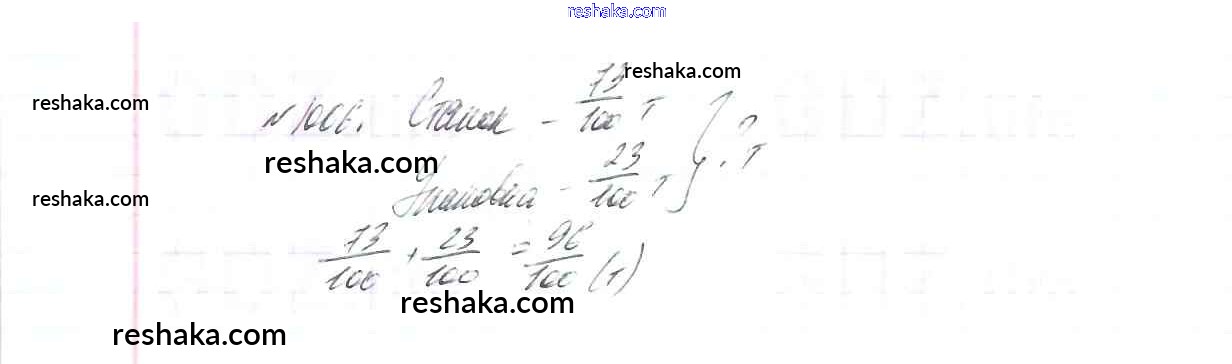 reshaka.com
reshaka.com
reshaka.com
№1006. Станок - 73/100 т } ? т
reshaka.com
Упаковка - 23/100 т
reshaka.com
73/100 + 23/100 = 96/100 (т)
reshaka.com
reshaka.com